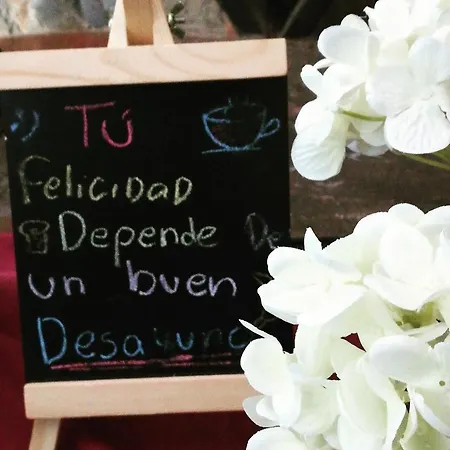 Tú
Felicidad
Depende De
un buen
Desayuno